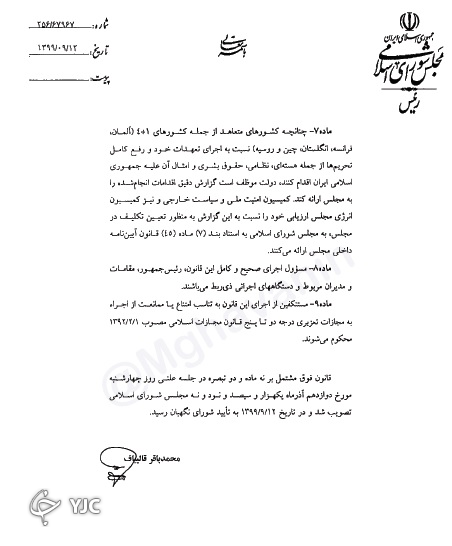 جمهوری اسلامی ایران
مجلس شورای اسلامی
رئیس
باسمه تعالی
شماره: ۲۵۶/۶۷۹۶۷
تاریخ: ۱۳۹۹/۰۹/۱۲
پیوست:
ماده۷- چنانچه کشورهای متعاهد از جمله کشورهای ۱+۴ (آلمان،
فرانسه، انگلستان، چین و روسیه) نسبت به اجرای تعهدات خود و رفع کامل
تحریم‌ها از جمله هسته‌ای، نظامی، حقوق بشری و امثال آن علیه جمهوری
اسلامی ایران اقدام کنند، دولت موظف است گزارش دقیق اقدامات انجام‌شده را
به مجلس ارائه کند. کمیسیون امنیت ملی و سیاست خارجی و نیز کمیسیون
انرژی مجلس ارزیابی خود را نسبت به این گزارش به منظور تعیین تکلیف در
مجلس، به مجلس شورای اسلامی به استناد بند (۷) ماده (۴۵) قانون آیین‌نامه
داخلی مجلس ارائه می‌کنند.
ماده۸- مسؤول اجرای صحیح و کامل این قانون، رئیس‌جمهور، مقامات
و مدیران مربوط و دستگاههای اجرائی ذی‌ربط می‌باشند.
ماده۹- مستنکفین از اجرای این قانون به تناسب امتناع یا ممانعت از اجراء
به مجازات تعزیری درجه دو تا پنج قانون مجازات اسلامی مصوب ۱۳۹۲/۲/۱
محکوم می‌شوند.
قانون فوق مشتمل بر نه ماده و دو تبصره در جلسه علنی روز چهارشنبه
مورخ دوازدهم آذرماه یکهزار و سیصد و نود و نه مجلس شورای اسلامی
تصویب شد و در تاریخ ۱۳۹۹/۹/۱۲ به تأیید شورای نگهبان رسید.
محمدباقر قالیباف
YJC